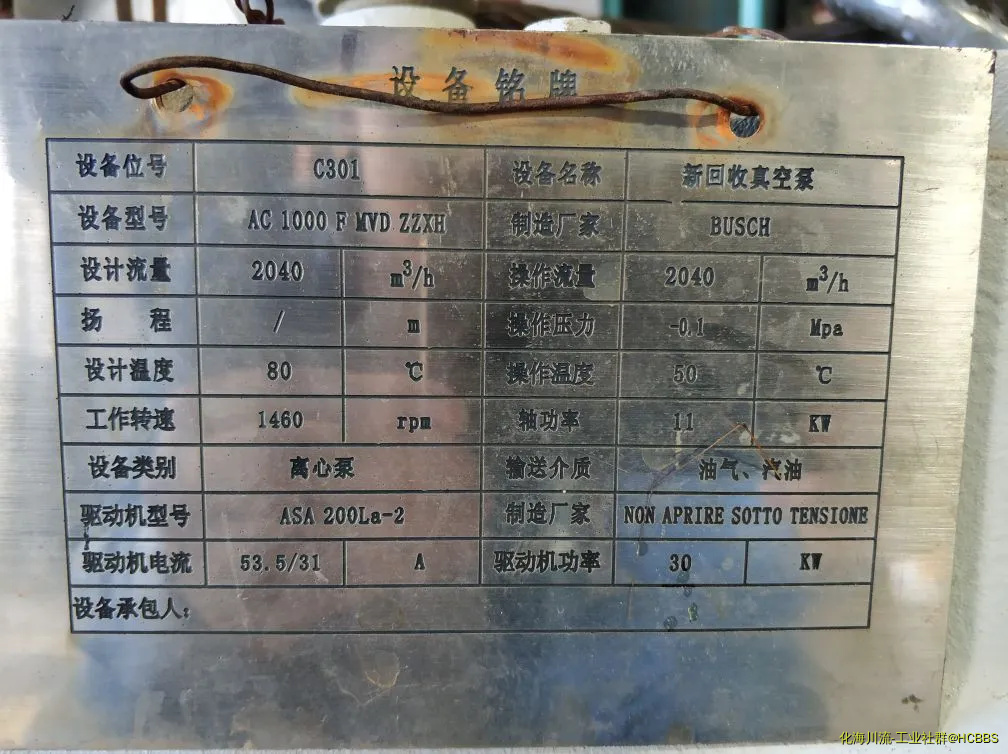 设备铭牌
设备位号 C301 设备名称 新回收真空泵
设备型号 AC 1000 F MVD ZZXH 制造厂家 BUSCH
设计流量 2040 m³/h 操作流量 2040 m³/h
扬 程 / m 操作压力 -0.1 Mpa
设计温度 80 ℃ 操作温度 50 ℃
工作转速 1460 rpm 轴功率 11 KW
设备类别 离心泵 输送介质 油气、汽油
驱动机型号 ASA 200La-2 制造厂家 NON APRIRE SOTTO TENSIONE
驱动机电流 53.5/31 A 驱动机功率 30 KW
设备承包人:
化海川流-工业社群@HCBBS